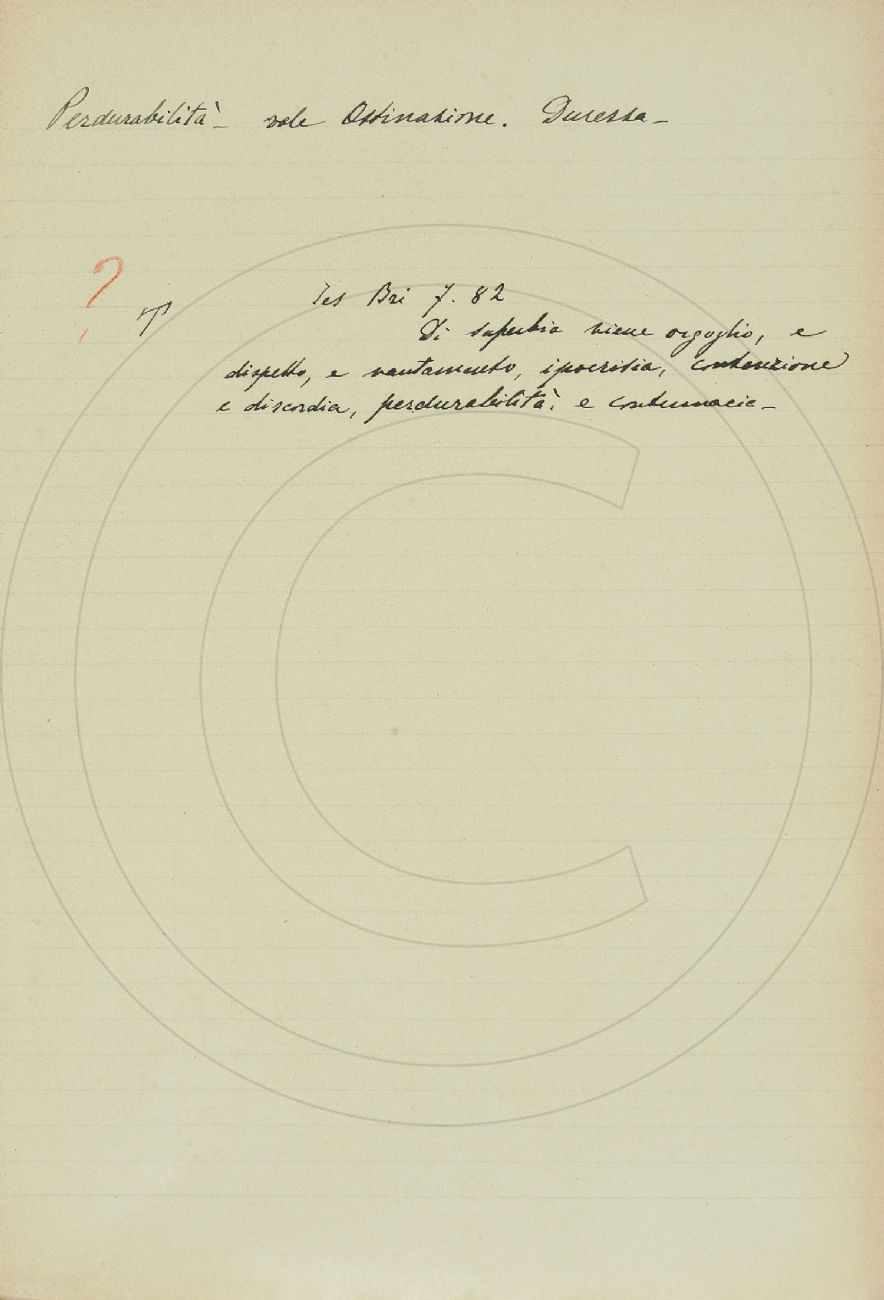 Perdurabilità_ vale Ostinazione. Durezza_
?
T
Tes Bri 7. 82
Di superbia viene orgoglio, e
dispetto, e vantamento, ipocrisia, contenzione
e discordia, perdurabilità, e contumacia_